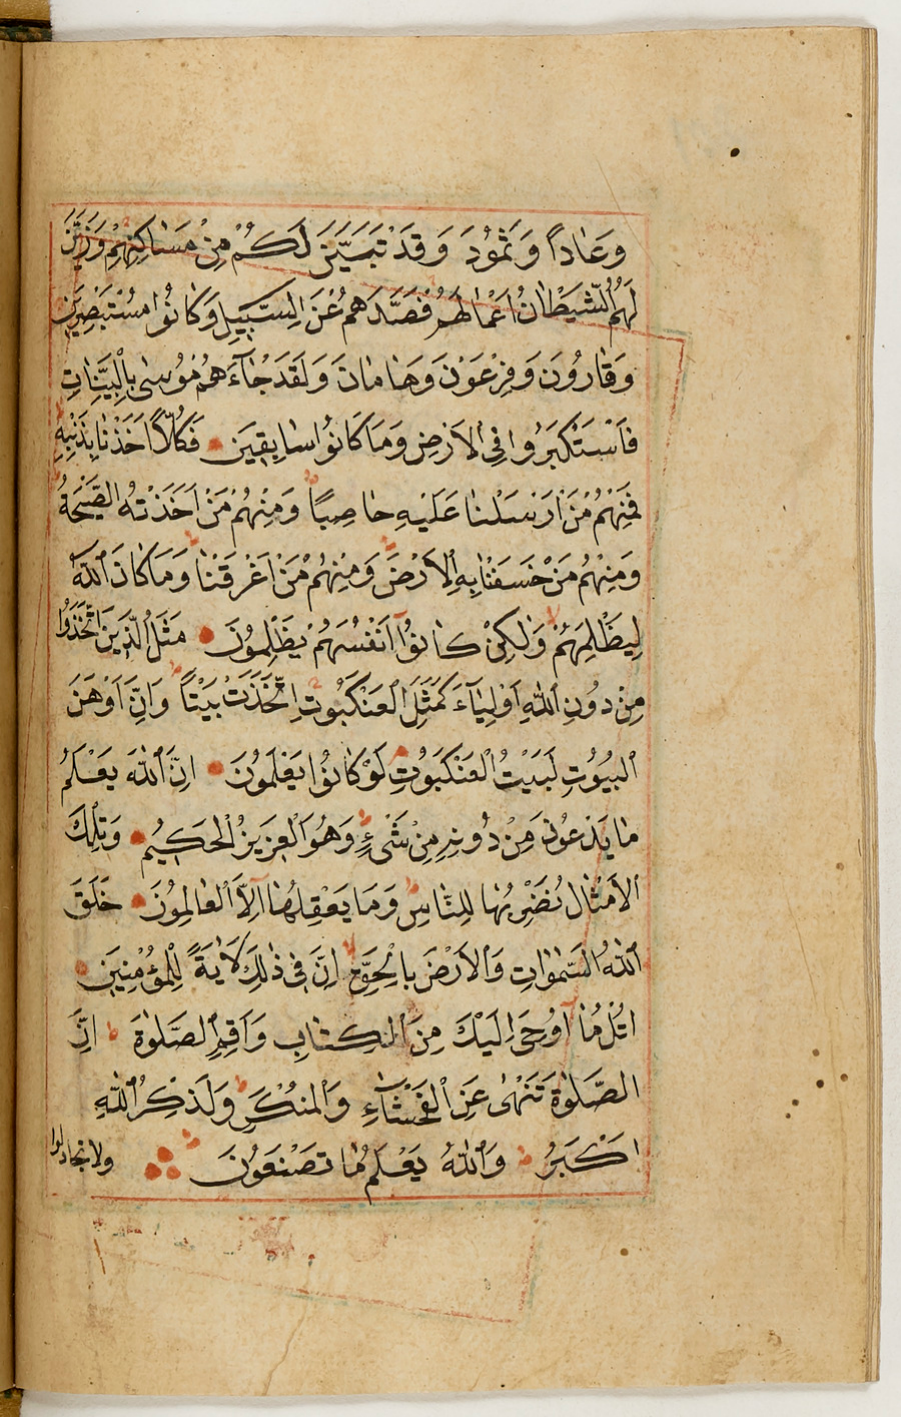 وَعَادًا وَثَمُودَ وَقَدْ تَبَيَّنَ لَكُمْ مِنْ مَسَاكِنِهِمْ وَزَيَّنَ
لَهُمُ الشَّيْطَانُ اَعْمَالَهُمْ فَصَدَّهُمْ عَنِ السَّبِيلِ وَكَانُوا مُسْتَبْصِرِينَ
وَقَارُونَ وَفِرْعَوْنَ وَهَامَانَ وَلَقَدْ جَآءَهُمْ مُوسٰى بِالْبَيِّنَاتِ
فَاسْتَكْبَرُوا فِى الْاَرْضِ وَمَا كَانُوا سَابِقِينَ فَكُلًّا اَخَذْنَا بِذَنْبِهِ
فَمِنْهُمْ مَنْ اَرْسَلْنَا عَلَيْهِ حَاصِبًا وَمِنْهُمْ مَنْ اَخَذَتْهُ الصَّيْحَةُ
وَمِنْهُمْ مَنْ خَسَفْنَا بِهِ الْاَرْضَ وَمِنْهُمْ مَنْ اَغْرَقْنَا وَمَا كَانَ اللّٰهُ
لِيَظْلِمَهُمْ وَلٰكِنْ كَانُوٓا اَنْفُسَهُمْ يَظْلِمُونَ مَثَلُ الَّذِينَ اتَّخَذُوا
مِنْ دُونِ اللّٰهِ اَوْلِيَآءَ كَمَثَلِ الْعَنْكَبُوتِ اِتَّخَذَتْ بَيْتًا وَاِنَّ اَوْهَنَ
الْبُيُوتِ لَبَيْتُ الْعَنْكَبُوتِ لَوْ كَانُوا يَعْلَمُونَ اِنَّ اللّٰهَ يَعْلَمُ
مَا يَدْعُونَ مِنْ دُونِهِ مِنْ شَىْءٍ وَهُوَ الْعَزِيزُ الْحَكِيمُ وَتِلْكَ
الْاَمْثَالُ نَضْرِبُهَا لِلنَّاسِ وَمَا يَعْقِلُهَآ اِلَّا الْعَالِمُونَ خَلَقَ
اللّٰهُ السَّمٰوَاتِ وَالْاَرْضَ بِالْحَقِّ اِنَّ فِى ذٰلِكَ لَاٰيَةً لِلْمُؤْمِنِينَ
اُتْلُ مَآ اُوحِىَ اِلَيْكَ مِنَ الْكِتَابِ وَاَقِمِ الصَّلٰوةَ اِنَّ
الصَّلٰوةَ تَنْهٰى عَنِ الْفَحْشَآءِ وَالْمُنْكَرِ وَلَذِكْرُ اللّٰهِ
اَكْبَرُ وَاللّٰهُ يَعْلَمُ مَا تَصْنَعُونَ
ولا تجادلوا